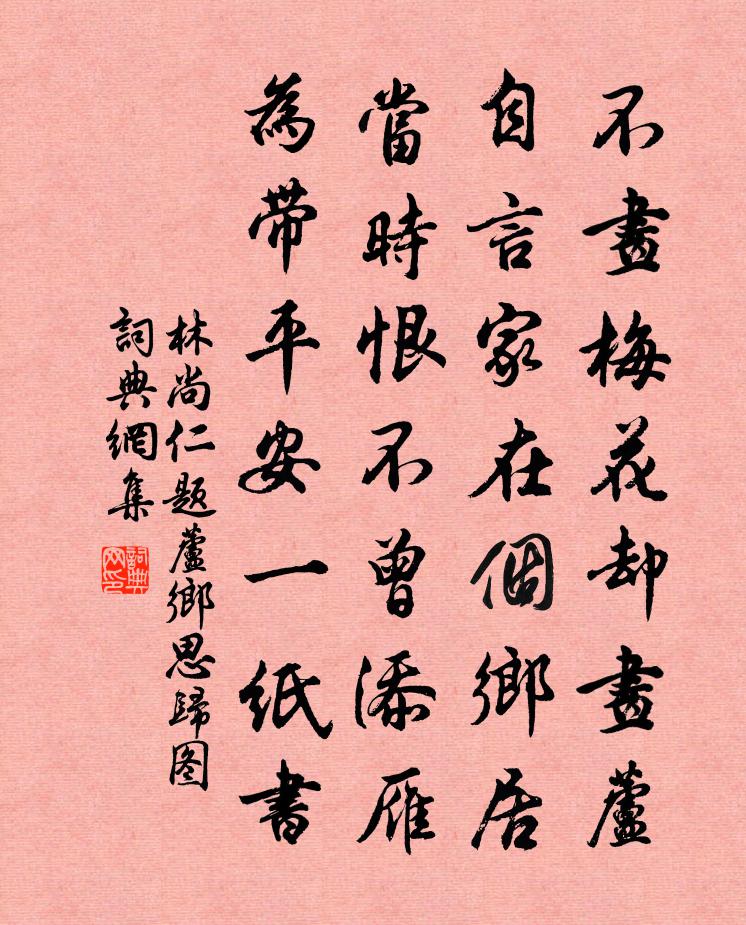 不畫梅花却畫蘆
自言家在個鄉居
當時恨不曾添雁
為帶平安一紙書
林尚仁題蘆鄉思歸图
詞典網集
詞典网印